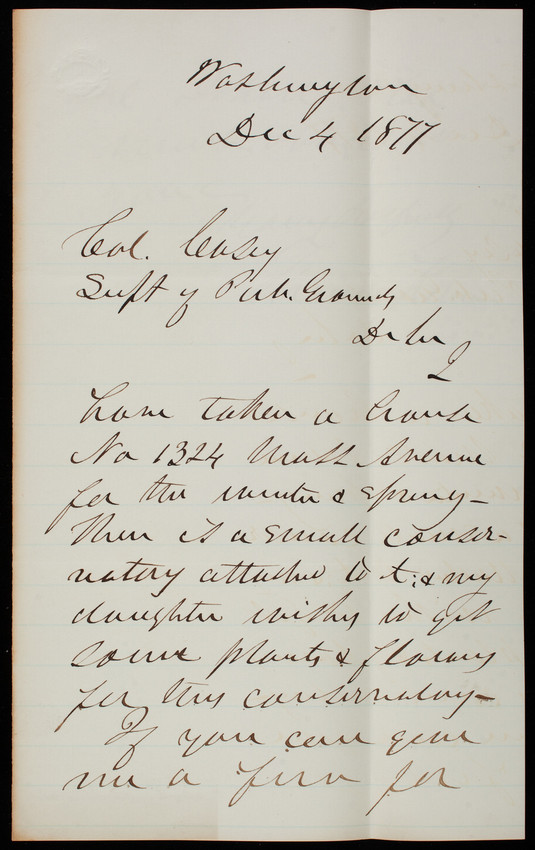 Washington
Dec 4 1877
Col. Casey
Supt of Pub. Grounds
Dr Sir
I
have taken a house
No 1324 Mass Avenue
for the winter & spring—
There is a small conser-
vatory attached to it; & my
daughter wishes to get
some plants & flowers
for this conservatory—
If you can give
me a few for